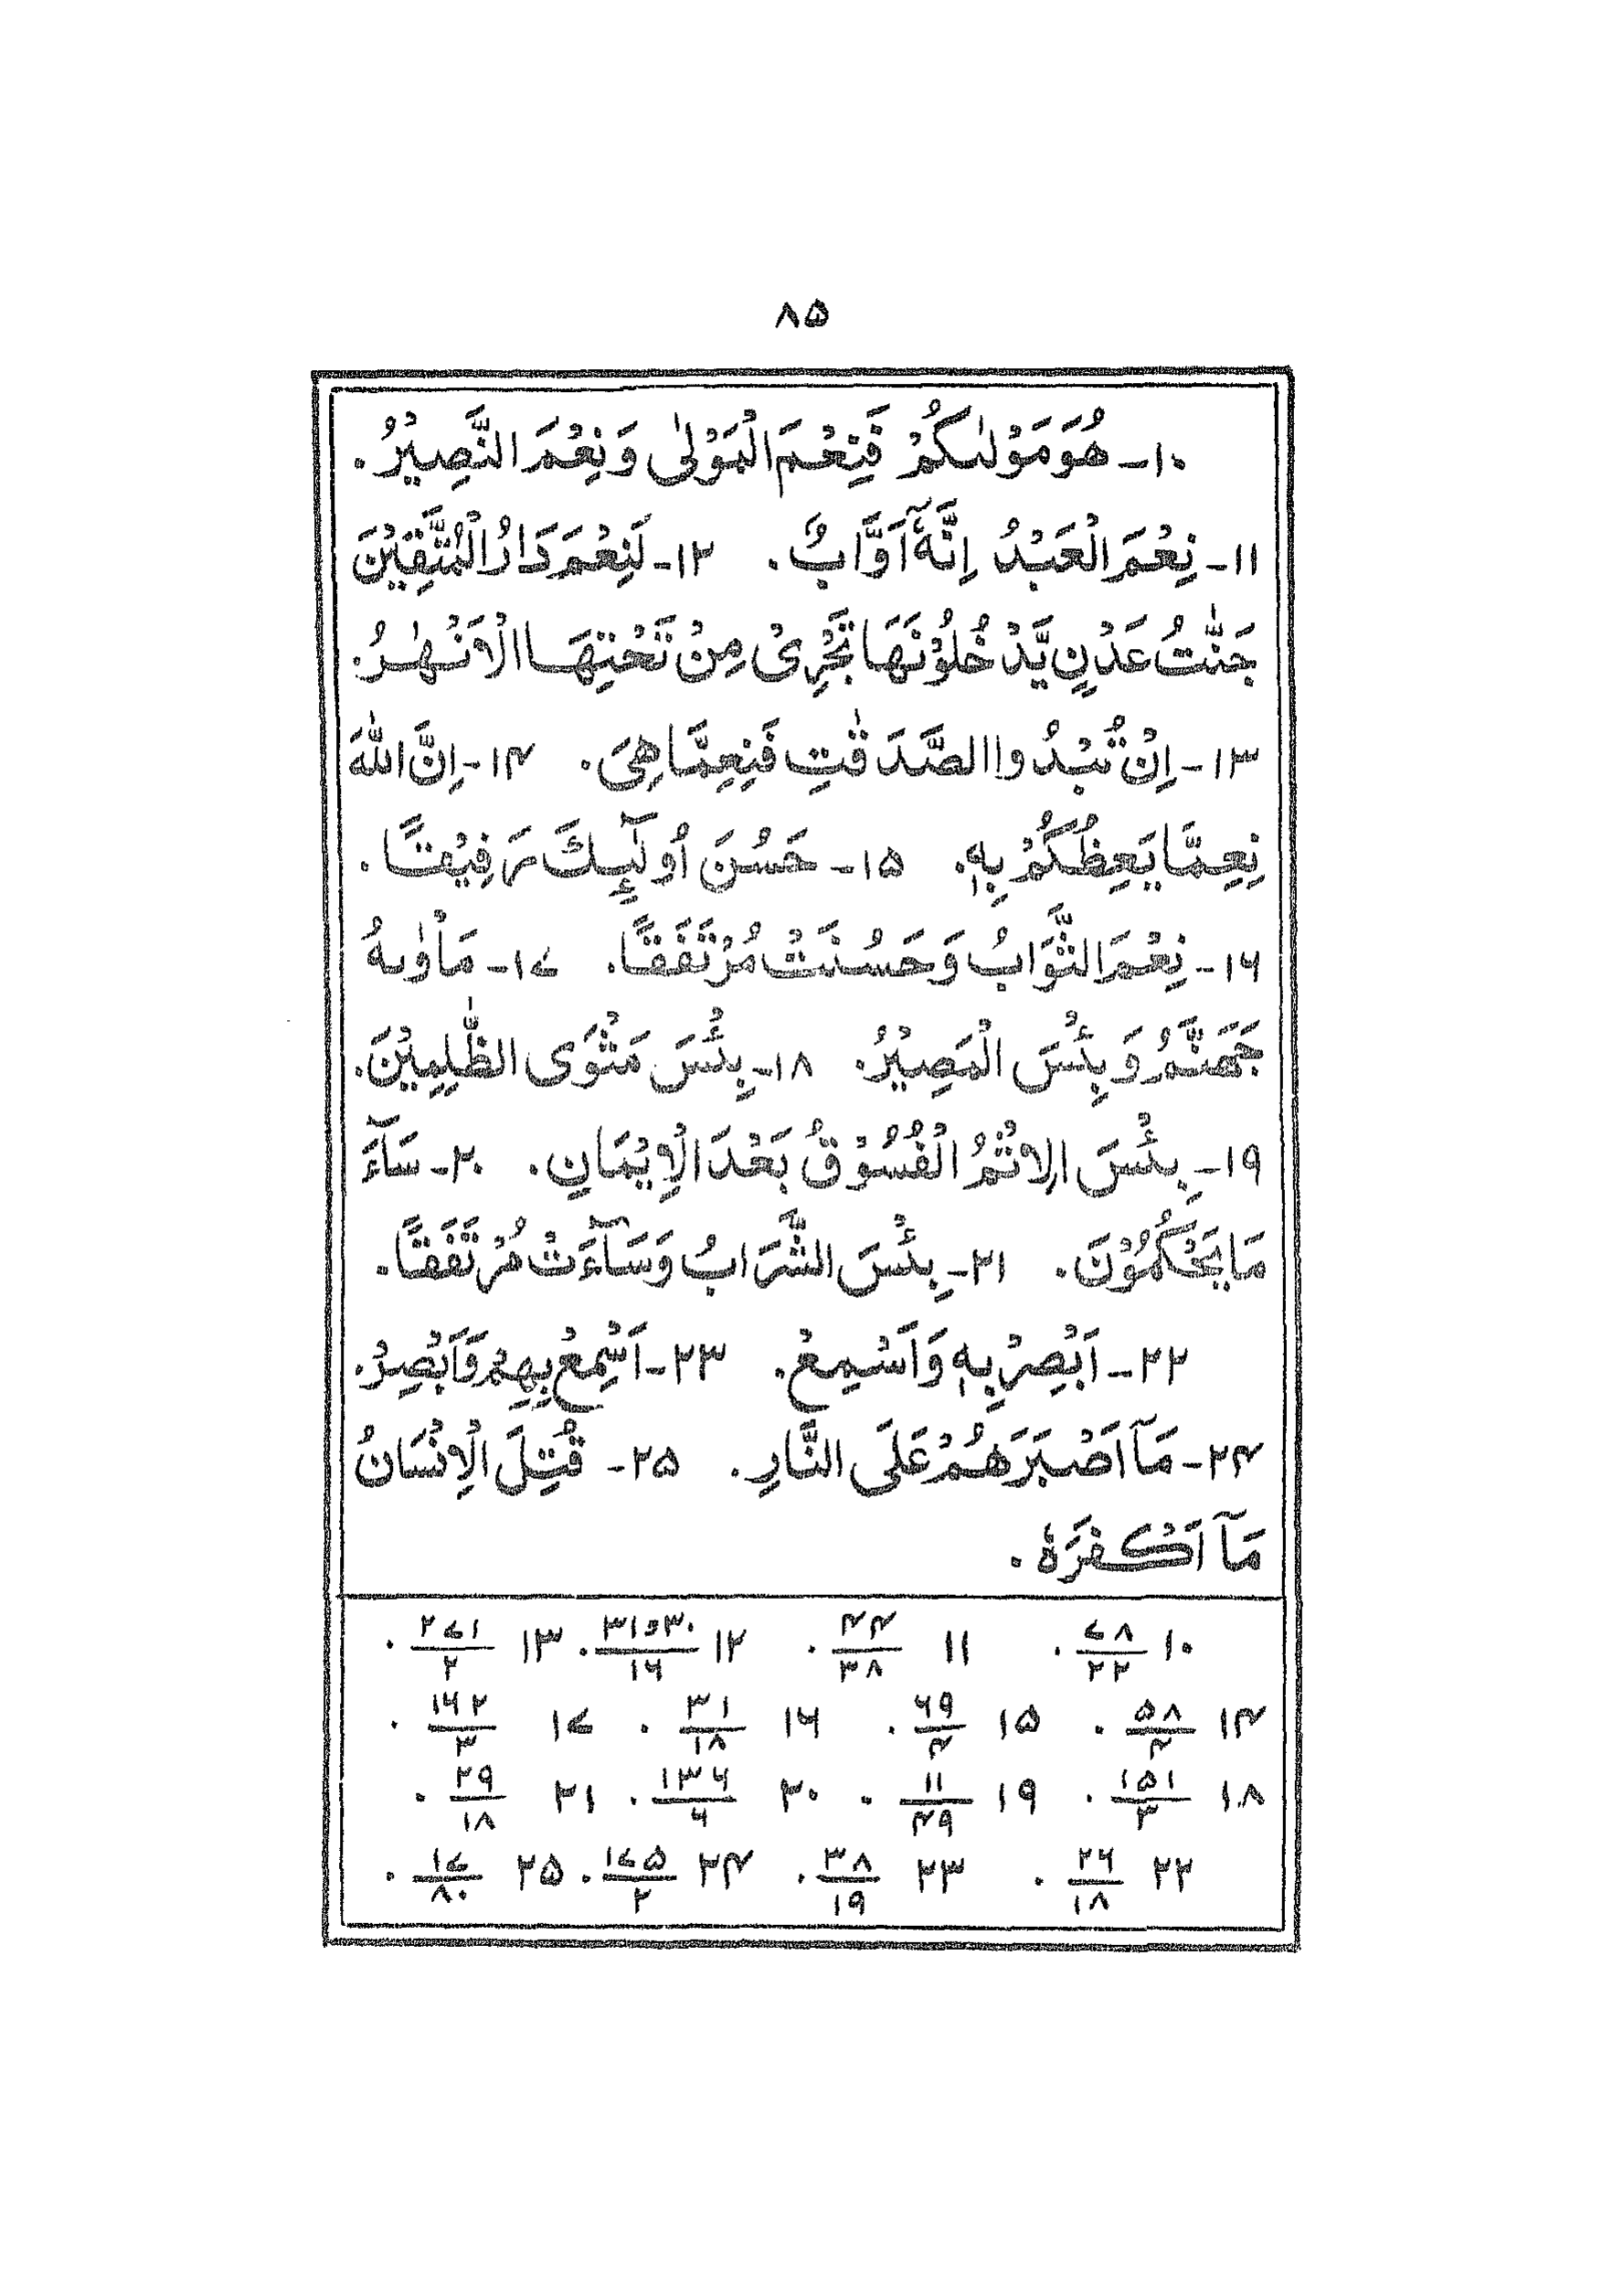 ۸۵
۱۰- هُوَ مَوْلٰىكُمْ فَنِعْمَ الْمَوْلٰى وَنِعْمَ النَّصِيْرُ۔
۱۱- نِعْمَ الْعَبْدُ اِنَّهٗٓ اَوَّابٌ۔ ۱۲- لَنِعْمَ دَارُ الْمُتَّقِيْنَ
جَنّٰتُ عَدْنٍ يَّدْخُلُوْنَهَا تَجْرِىْ مِنْ تَحْتِهَا الْاَنْهٰرُ۔
۱۳- اِنْ تُبْدُوا الصَّدَقٰتِ فَنِعِمَّا هِىَ۔ ۱۴- اِنَّ اللّٰهَ
نِعِمَّا يَعِظُكُمْ بِهٖ۔ ۱۵- حَسُنَ اُولٰٓئِكَ رَفِيْقًا۔
۱۶- نِعْمَ الثَّوَابُ وَحَسُنَتْ مُرْتَفَقًا۔ ۱۷- مَاْوٰىهُ
جَهَنَّمُ وَبِئْسَ الْمَصِيْرُ۔ ۱۸- بِئْسَ مَثْوَى الظّٰلِمِيْنَ۔
۱۹- بِئْسَ الِاسْمُ الْفُسُوْقُ بَعْدَ الْاِيْمَانِ۔ ۲۰- سَآءَ
مَا يَحْكُمُوْنَ۔ ۲۱- بِئْسَ الشَّرَابُ وَسَآءَتْ مُرْتَفَقًا۔
۲۲- اَبْصِرْ بِهٖ وَاَسْمِعْ۔ ۲۳- اَسْمِعْ بِهِمْ وَاَبْصِرْ۔
۲۴- مَآ اَصْبَرَهُمْ عَلَى النَّارِ۔ ۲۵- قُتِلَ الْاِنْسَانُ
مَآ اَكْفَرَهٗ۔
۱۰ ۷۸/۲۲۔ ۱۱ ۴۴/۳۸۔ ۱۲ ۳۰و۳۱/۱۶۔ ۱۳ ۲۷۱/۲۔
۱۴ ۵۸/۴۔ ۱۵ ۶۹/۴۔ ۱۶ ۳۱/۱۸۔ ۱۷ ۱۶۲/۳۔
۱۸ ۱۵۱/۳۔ ۱۹ ۱۱/۴۹۔ ۲۰ ۱۳۶/۶۔ ۲۱ ۲۹/۱۸۔
۲۲ ۲۶/۱۸۔ ۲۳ ۳۸/۱۹۔ ۲۴ ۱۷۵/۲۔ ۲۵ ۱۷/۸۰۔